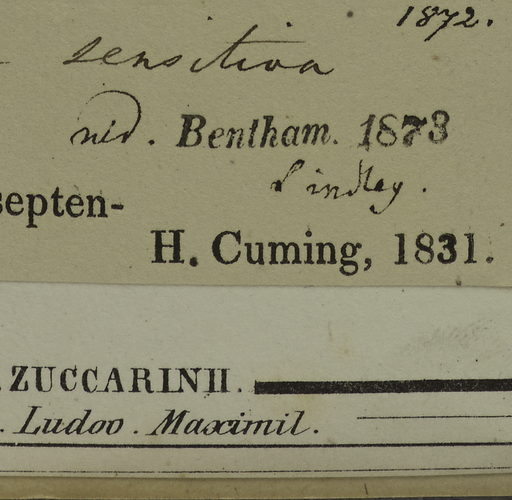 1872.
sensitiva
vid. Bentham. 1873
Lindley.
septen-
H. Cuming, 1831.
ZUCCARINII.
. Ludov. Maximil.